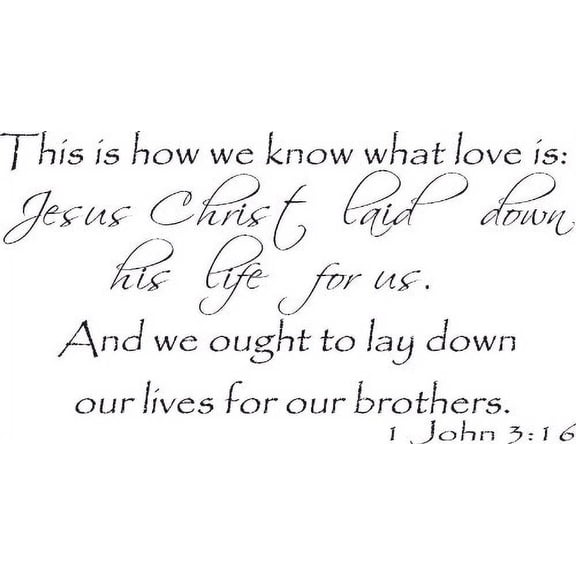 This is how we know what love is:
Jesus Christ laid down
his life for us.
And we ought to lay down
our lives for our brothers.
1 John 3:16